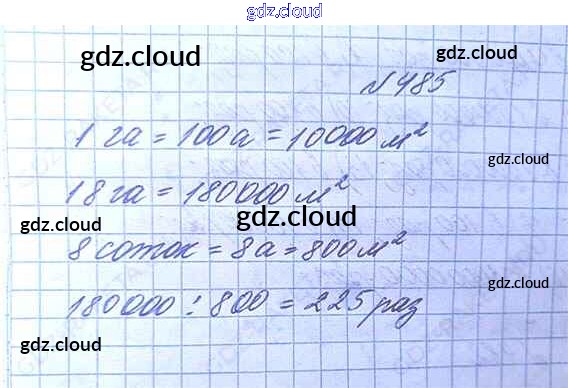 gdz.cloud
gdz.cloud
gdz.cloud
№485
1 га = 100 а = 10000 м²
gdz.cloud
18 га = 180000 м²
gdz.cloud
gdz.cloud
8 соток = 8а = 800 м²
gdz.cloud
180000 : 800 = 225 раз
gdz.cloud